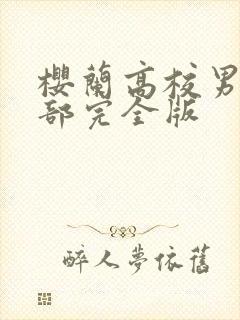 櫻蘭高校男
部完全版
醉人夢依舊